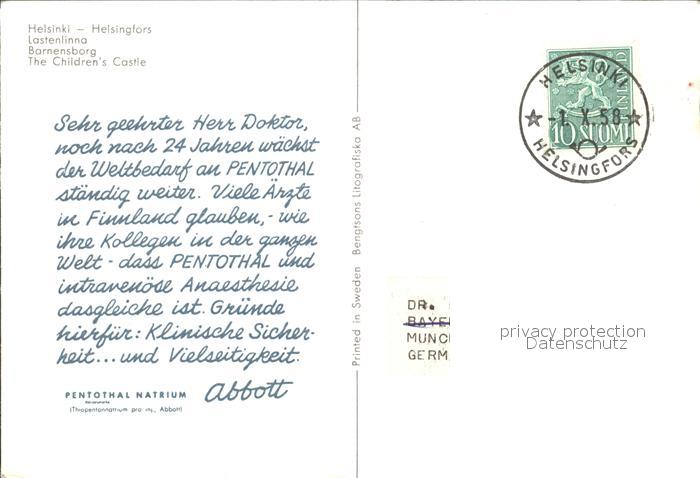 Helsinki – Helsingfors
Lastenlinna
Barnensborg
The Children's Castle
Sehr geehrter Herr Doktor,
noch nach 24 Jahren wächst
der Weltbedarf an PENTOTHAL
ständig weiter. Viele Ärzte
in Finnland glauben,- wie
ihre Kollegen in der ganzen
Welt - dass PENTOTHAL und
intravenöse Anaesthesie
dasgleiche ist. Gründe
hierfür: Klinische Sicher-
heit... und Vielseitigkeit.
Abbott
PENTOTHAL NATRIUM
(Thiopentonnatrium pro inj., Abbott)
Printed in Sweden Bengtsons Litografiska AB
HELSINKI
-1. X.58
HELSINGFORS
FINLAND
10 SUOMI
DR.
BAYE
MUNC
GERM
privacy protection
Datenschutz